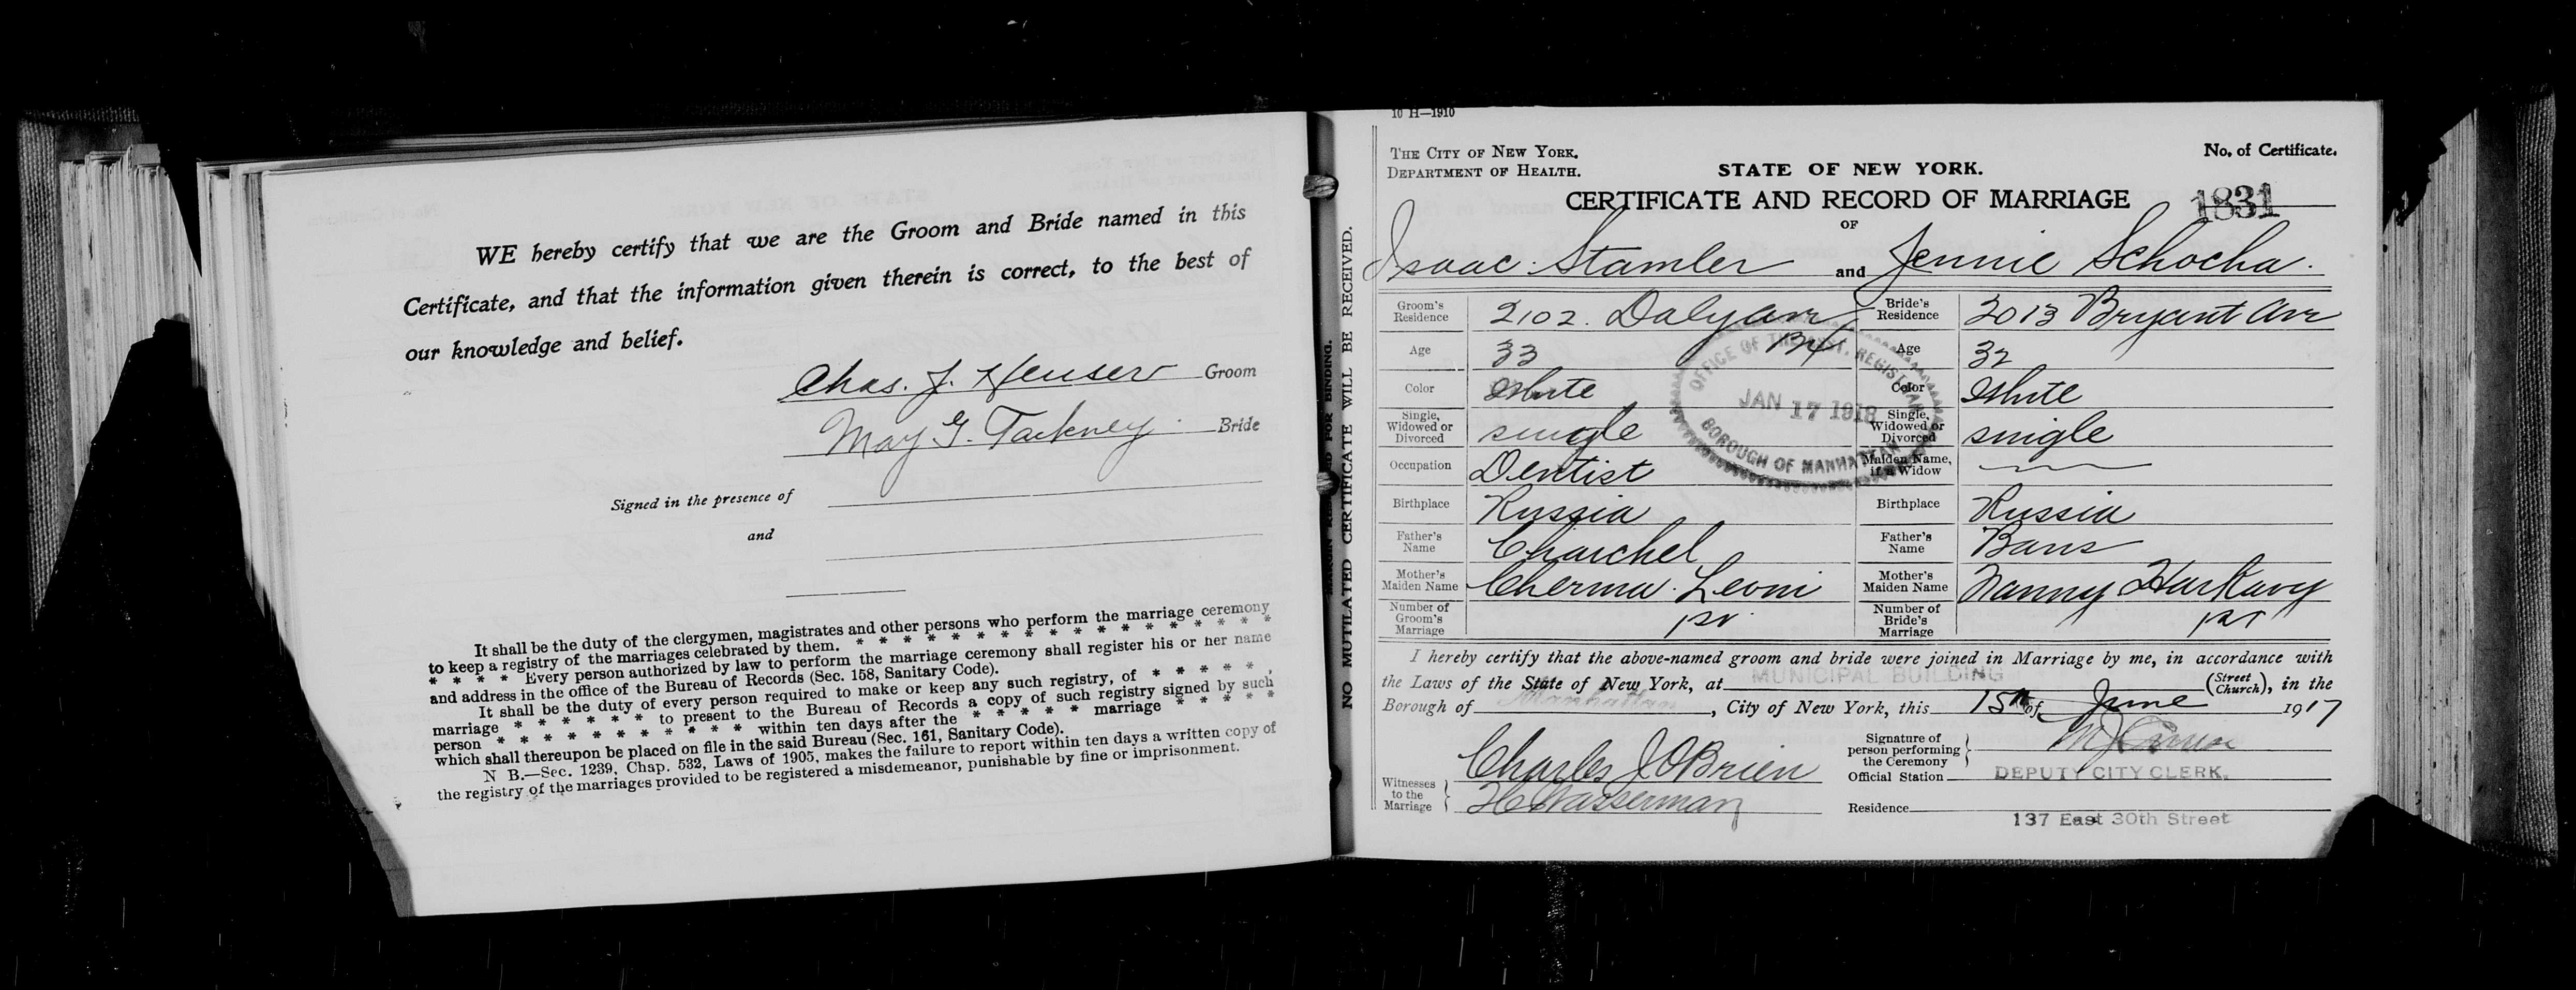 WE hereby certify that we are the Groom and Bride named in this
Certificate, and that the information given therein is correct, to the best of
our knowledge and belief.
Chas. J. Heuser Groom
May G. Tackney. Bride
Signed in the presence of
and
It shall be the duty of the clergymen, magistrates and other persons who perform the marriage ceremony
to keep a registry of the marriages celebrated by them. * * * * * * * * * * * * * * * *
* * * * Every person authorized by law to perform the marriage ceremony shall register his or her name
and address in the office of the Bureau of Records (Sec. 158, Sanitary Code).
It shall be the duty of every person required to make or keep any such registry, of * * * * *
marriage * * * * * * to present to the Bureau of Records a copy of such registry signed by such
person * * * * * * * * * * within ten days after the * * * * * marriage * * * * *
which shall thereupon be placed on file in the said Bureau (Sec. 161, Sanitary Code).
N B.—Sec. 1239, Chap. 532, Laws of 1905, makes the failure to report within ten days a written copy of
the registry of the marriages provided to be registered a misdemeanor, punishable by fine or imprisonment.
MARGIN RESERVED FOR BINDING.
NO MUTILATED CERTIFICATE WILL BE RECEIVED.
10 H—1910
THE CITY OF NEW YORK.
DEPARTMENT OF HEALTH.
STATE OF NEW YORK.
No. of Certificate.
CERTIFICATE AND RECORD OF MARRIAGE
1831
OF
Isaac Stamler and Jennie Schocha.
Groom's Residence 2102. Daly Ave Bx Bride's Residence 2013 Bryant Ave
Age 33 Age 32
Color White Color White
Single, Widowed or Divorced single Single, Widowed or Divorced single
Occupation Dentist Maiden Name, if a Widow
Birthplace Russia Birthplace Russia
Father's Name Charchel Father's Name
Mother's Maiden Name Cherma Leoni Mother's Maiden Name Nanny Harkavy
Number of Groom's Marriage 1st Number of Bride's Marriage 1st
OFFICE OF THE ASST. REGISTRAR
JAN 17 1918
BOROUGH OF MANHATTAN
I hereby certify that the above-named groom and bride were joined in Marriage by me, in accordance with
the Laws of the State of New York, at MUNICIPAL BUILDING (Street Church), in the
Borough of Manhattan, City of New York, this 15th of June 1917
Witnesses to the Marriage Charles J OBrien
H Wasserman
Signature of person performing the Ceremony
Official Station DEPUTY CITY CLERK.
Residence
137 East 30th Street